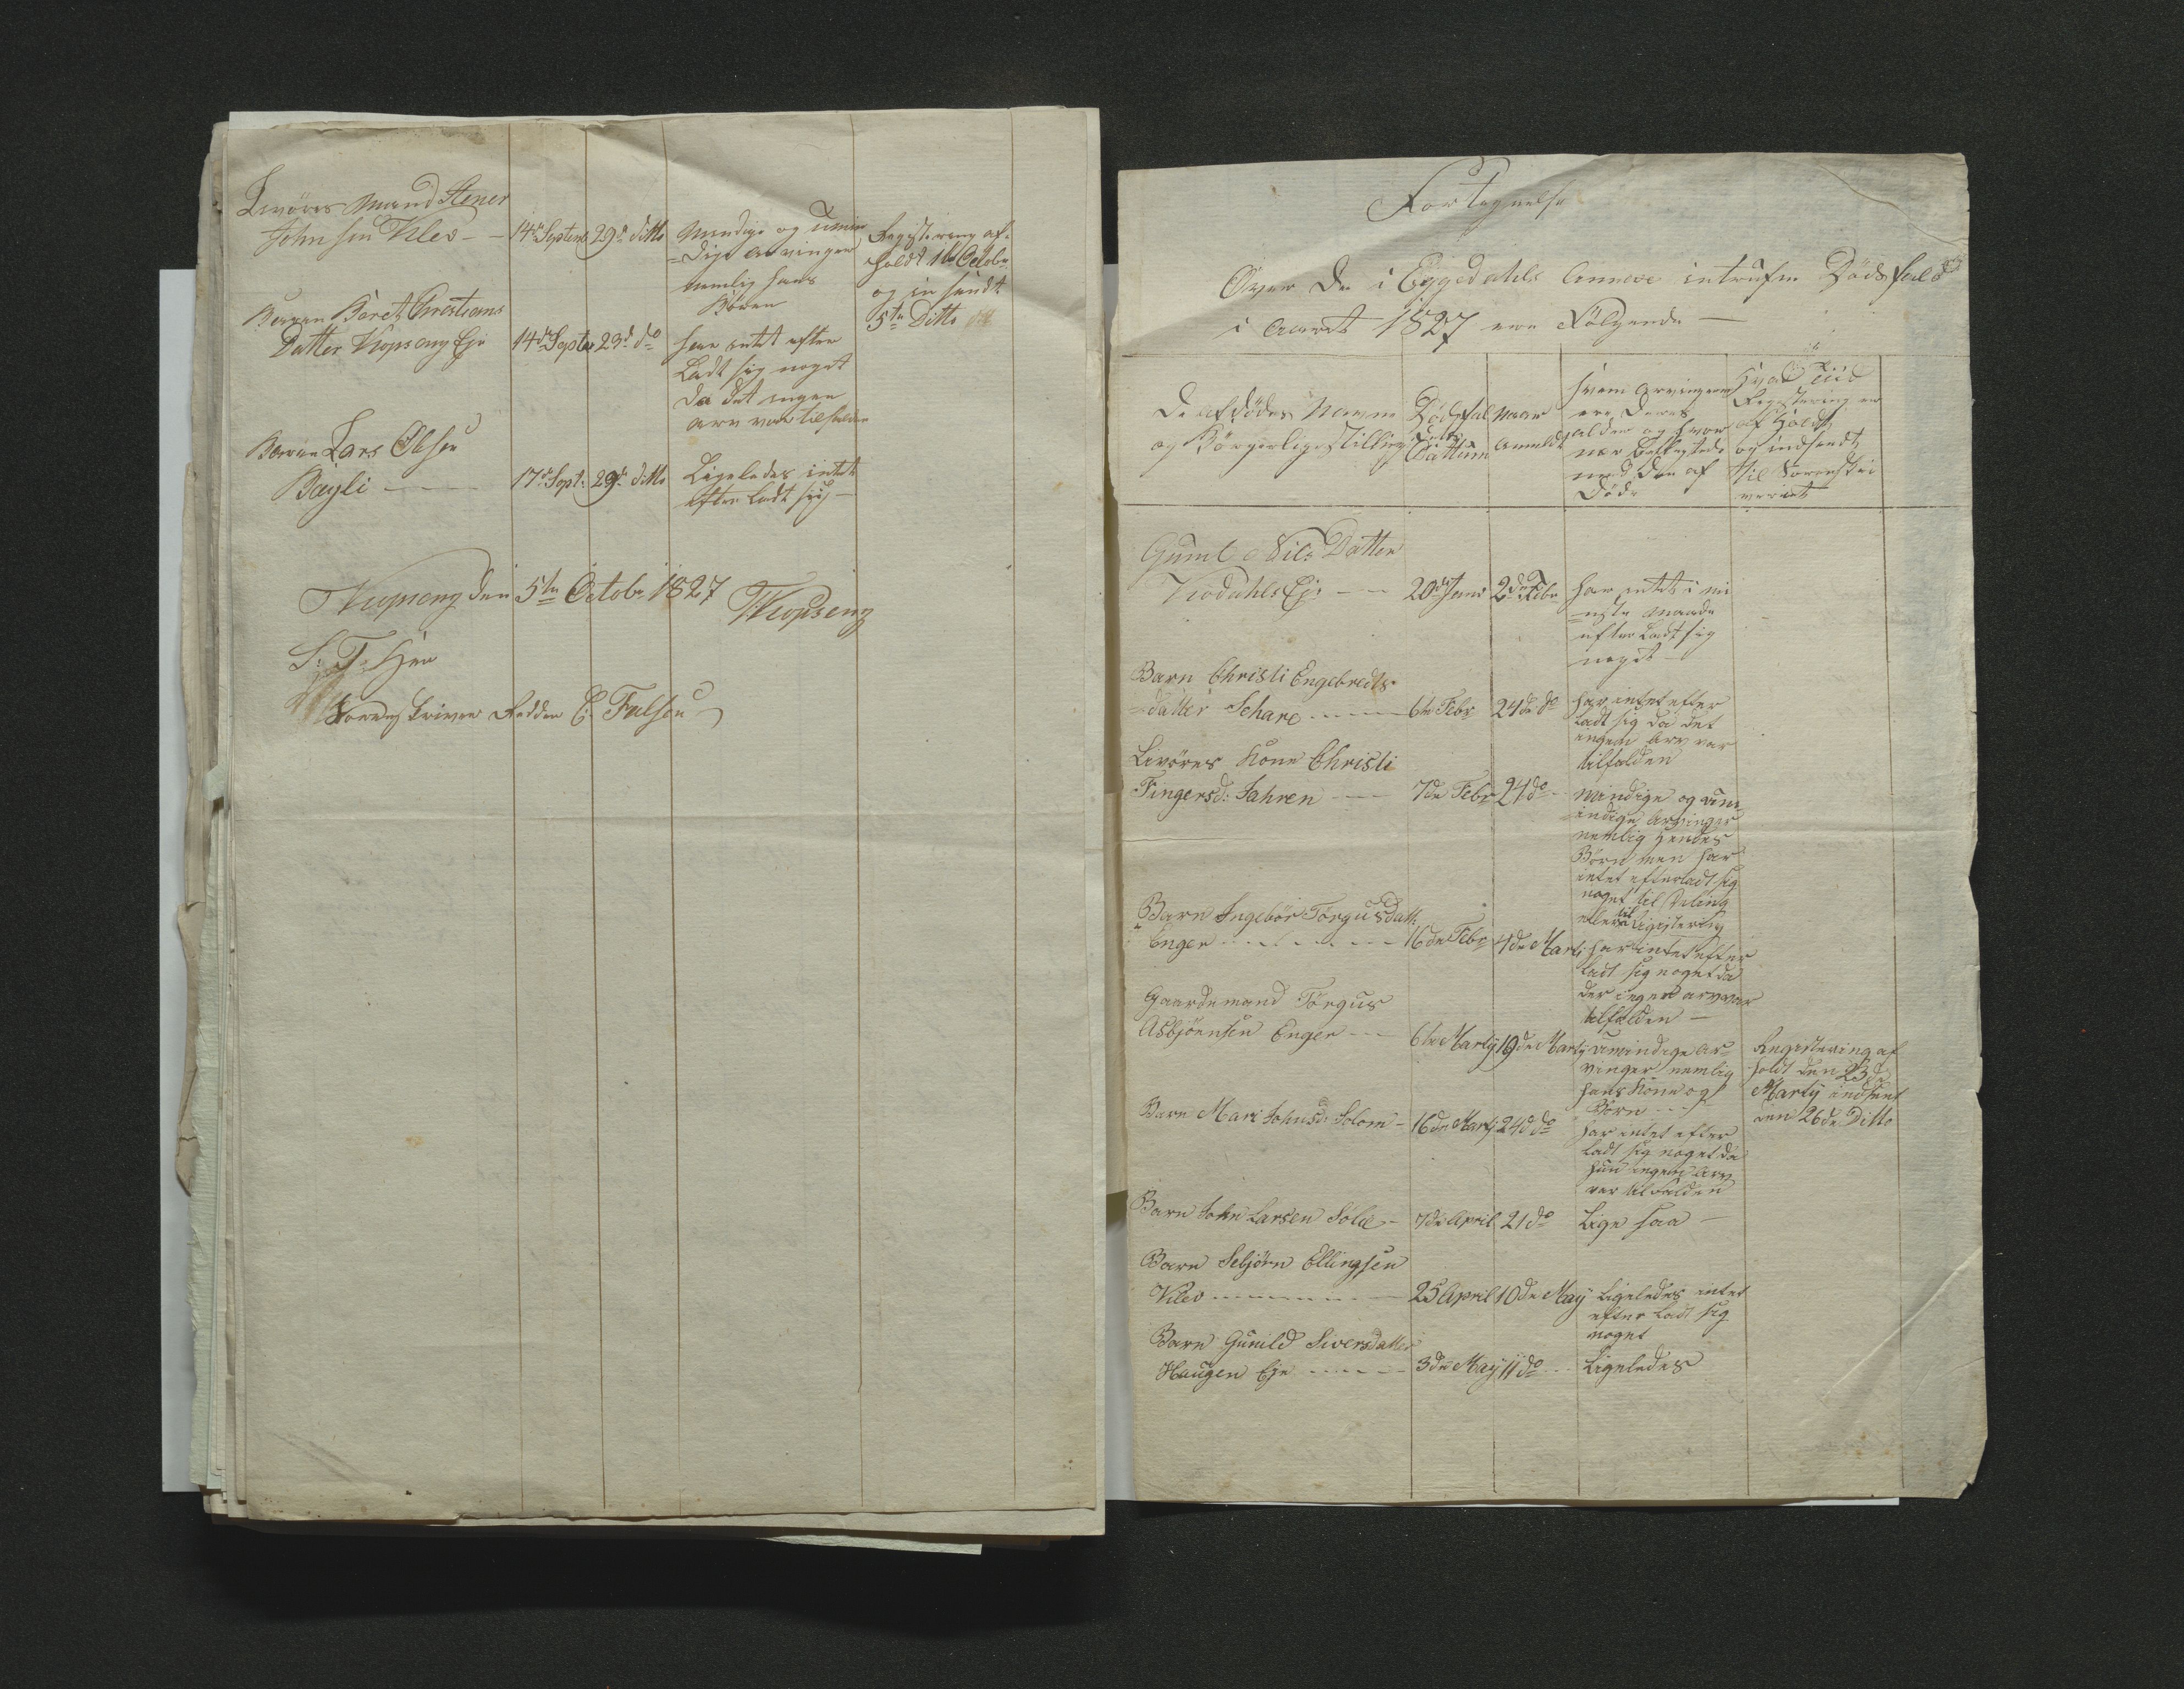 Levöres Mand Stener
Johnsen Kleo — 14de Septemb 29de ditto Mündige og Umün
dige arvinger
nemlig hans
Börn
Registering af
holdt 1te Octobr
og in sendt
5te Ditto
Barn Böret Christians
Datter Kopseng Eje 14de Septbr 23de do har intet efter
Ladt sig noget
da det ingen
arv var tilfalden
Barn Lars Olsen
Bayli — 17de Sept: 29de ditto Ligeledes intet
efter Ladt sig —
Kopseng den 5te Octobr 1827
Kopseng
S: T: Herr
Sorenskriver Redder C: Falsen
Fortegnelse
Over de i Eggedahls Annex intrufne Dödsfald
i Aaret 1827 ere Fölgende —
De afdödes Navne
og Börgerlige Stilling
Dödsfal
dets
Dattum
Naar
anmeldt
Hvem Arvingerne
ere deres
alder og hvor
nær beslegtede
med den af
döde
Hvad Tiid
Registering er
af Holdt
og indsendt
til Sorenskri
veriet
Gunil Nils Datter
Kiodahls Eje — 20de Janr 2den Febr har intet i mi
nste Maade
efter Ladt sig
noget —
Barn Christi Engebredts
datter Schare — 6te Febr 24de do har intet efter
ladt sig da det
ingen Arv var
tilfalden
Levöres Kone Christi
Fingersd: Jahren — 7de Febr 24 do Mündige og um
ündige Arvinger
nemlig Hendes
Börn men har
intet efterladt sig
noget til Deling
eller til Registering
Barn Ingebör Törgusdatt
Enger — 16de Febr 4de Marti har intet efter
ladt sig noget da
der ingen arv var
tilfalden —
Gaardemand Törgus
Asbjörnsen Enger — 6te Marty 19de Marty umündige Ar
vinger nemlig
hans Kone og
Börn —
Registering af
holdt den 23de
Marty indsent
den 26de Ditto
Barn Mari Johnsd: Solom — 16de Marty 24d do har intet efter
ladt sig noget da
hun ingen Arv
var tilfalden
Barn John Larsen Solie — 7de April 21 do Lige saa —
Barn Sebjörn Ellingsen
Kleo — 25 April 10de May Ligeledes intet
efter ladt sig
noget
Barn Gunild Siversdatter
Haugen Eje — 3de May 11 do Ligeledes